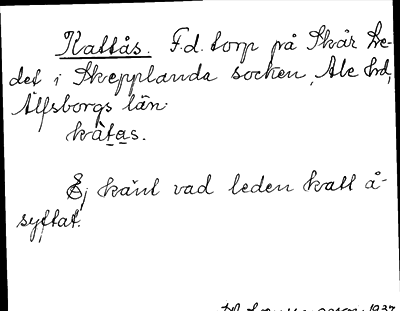 Kattås. F.d. torp på Skår Bre-
det i Skepplanda socken, Ale hrd,
Älfsborgs län.
kàtas.
Ej känt vad leden katt å-
syftat.
1937